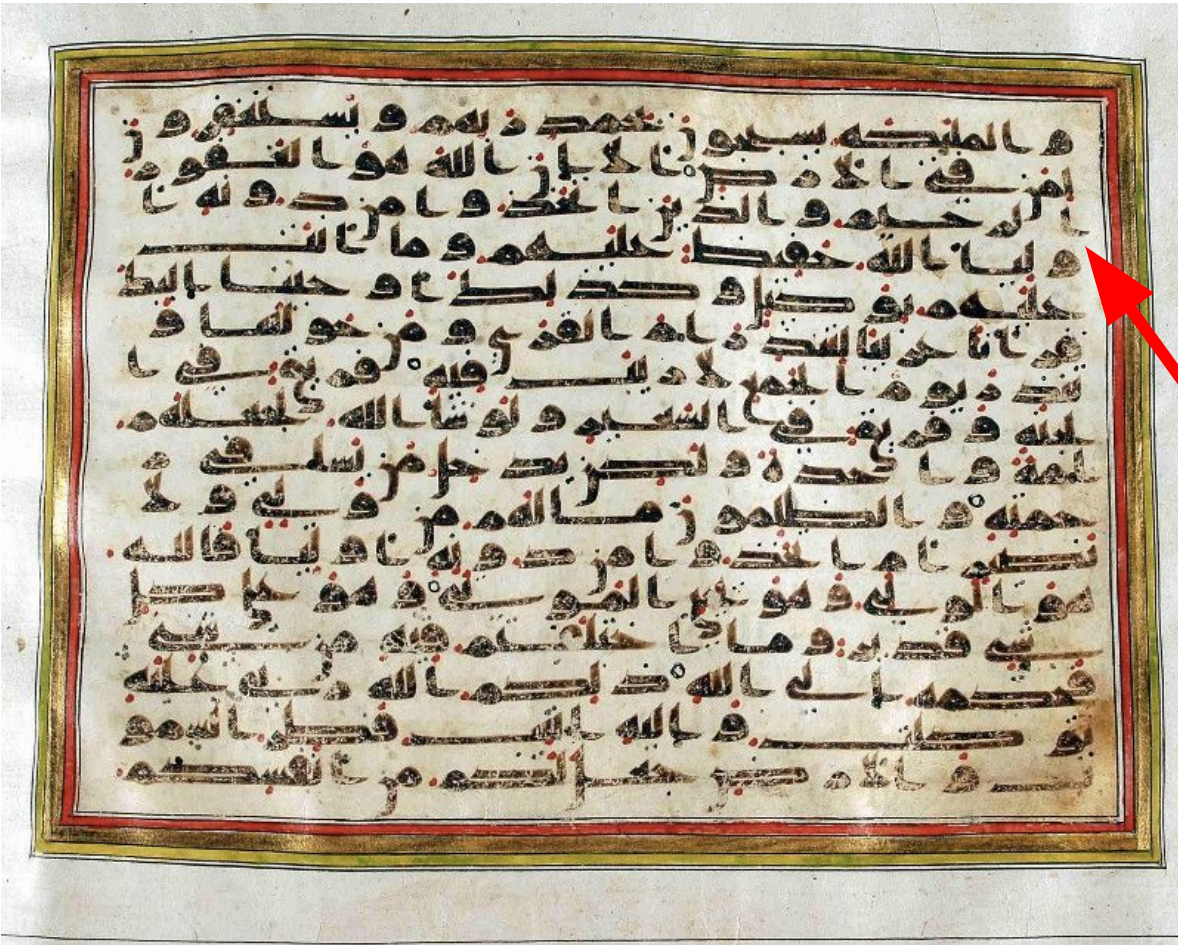 والملئكة يسبحون بحمد ربهم ويستغفرون
لمن في الارض الا ان الله هو الغفور
الرحيم والذين اتخذوا من دونه ا
وليا الله حفيظ عليهم وما انت
عليهم بوكيل وكذلك اوحينا اليك
قرانا عربيا لتنذر ام القرى ومن حولها و
تنذر يوم الجمع لا ريب فيه فريق في ا
لجنة وفريق في السعير ولو شا الله لجعلهم
امة وحدة ولكن يدخل من يشا في ر
حمته والظلمون ما لهم من ولي ولا
نصير ام اتخذوا من دونه اوليا فالله
هو الولي وهو يحي الموتى وهو على كل
شي قدير وما اختلفتم فيه من شي
فحكمه الى الله ذلكم الله ربي عليه
توكلت واليه انيب فطر السمو
ت والارض جعل لكم من انفسكم